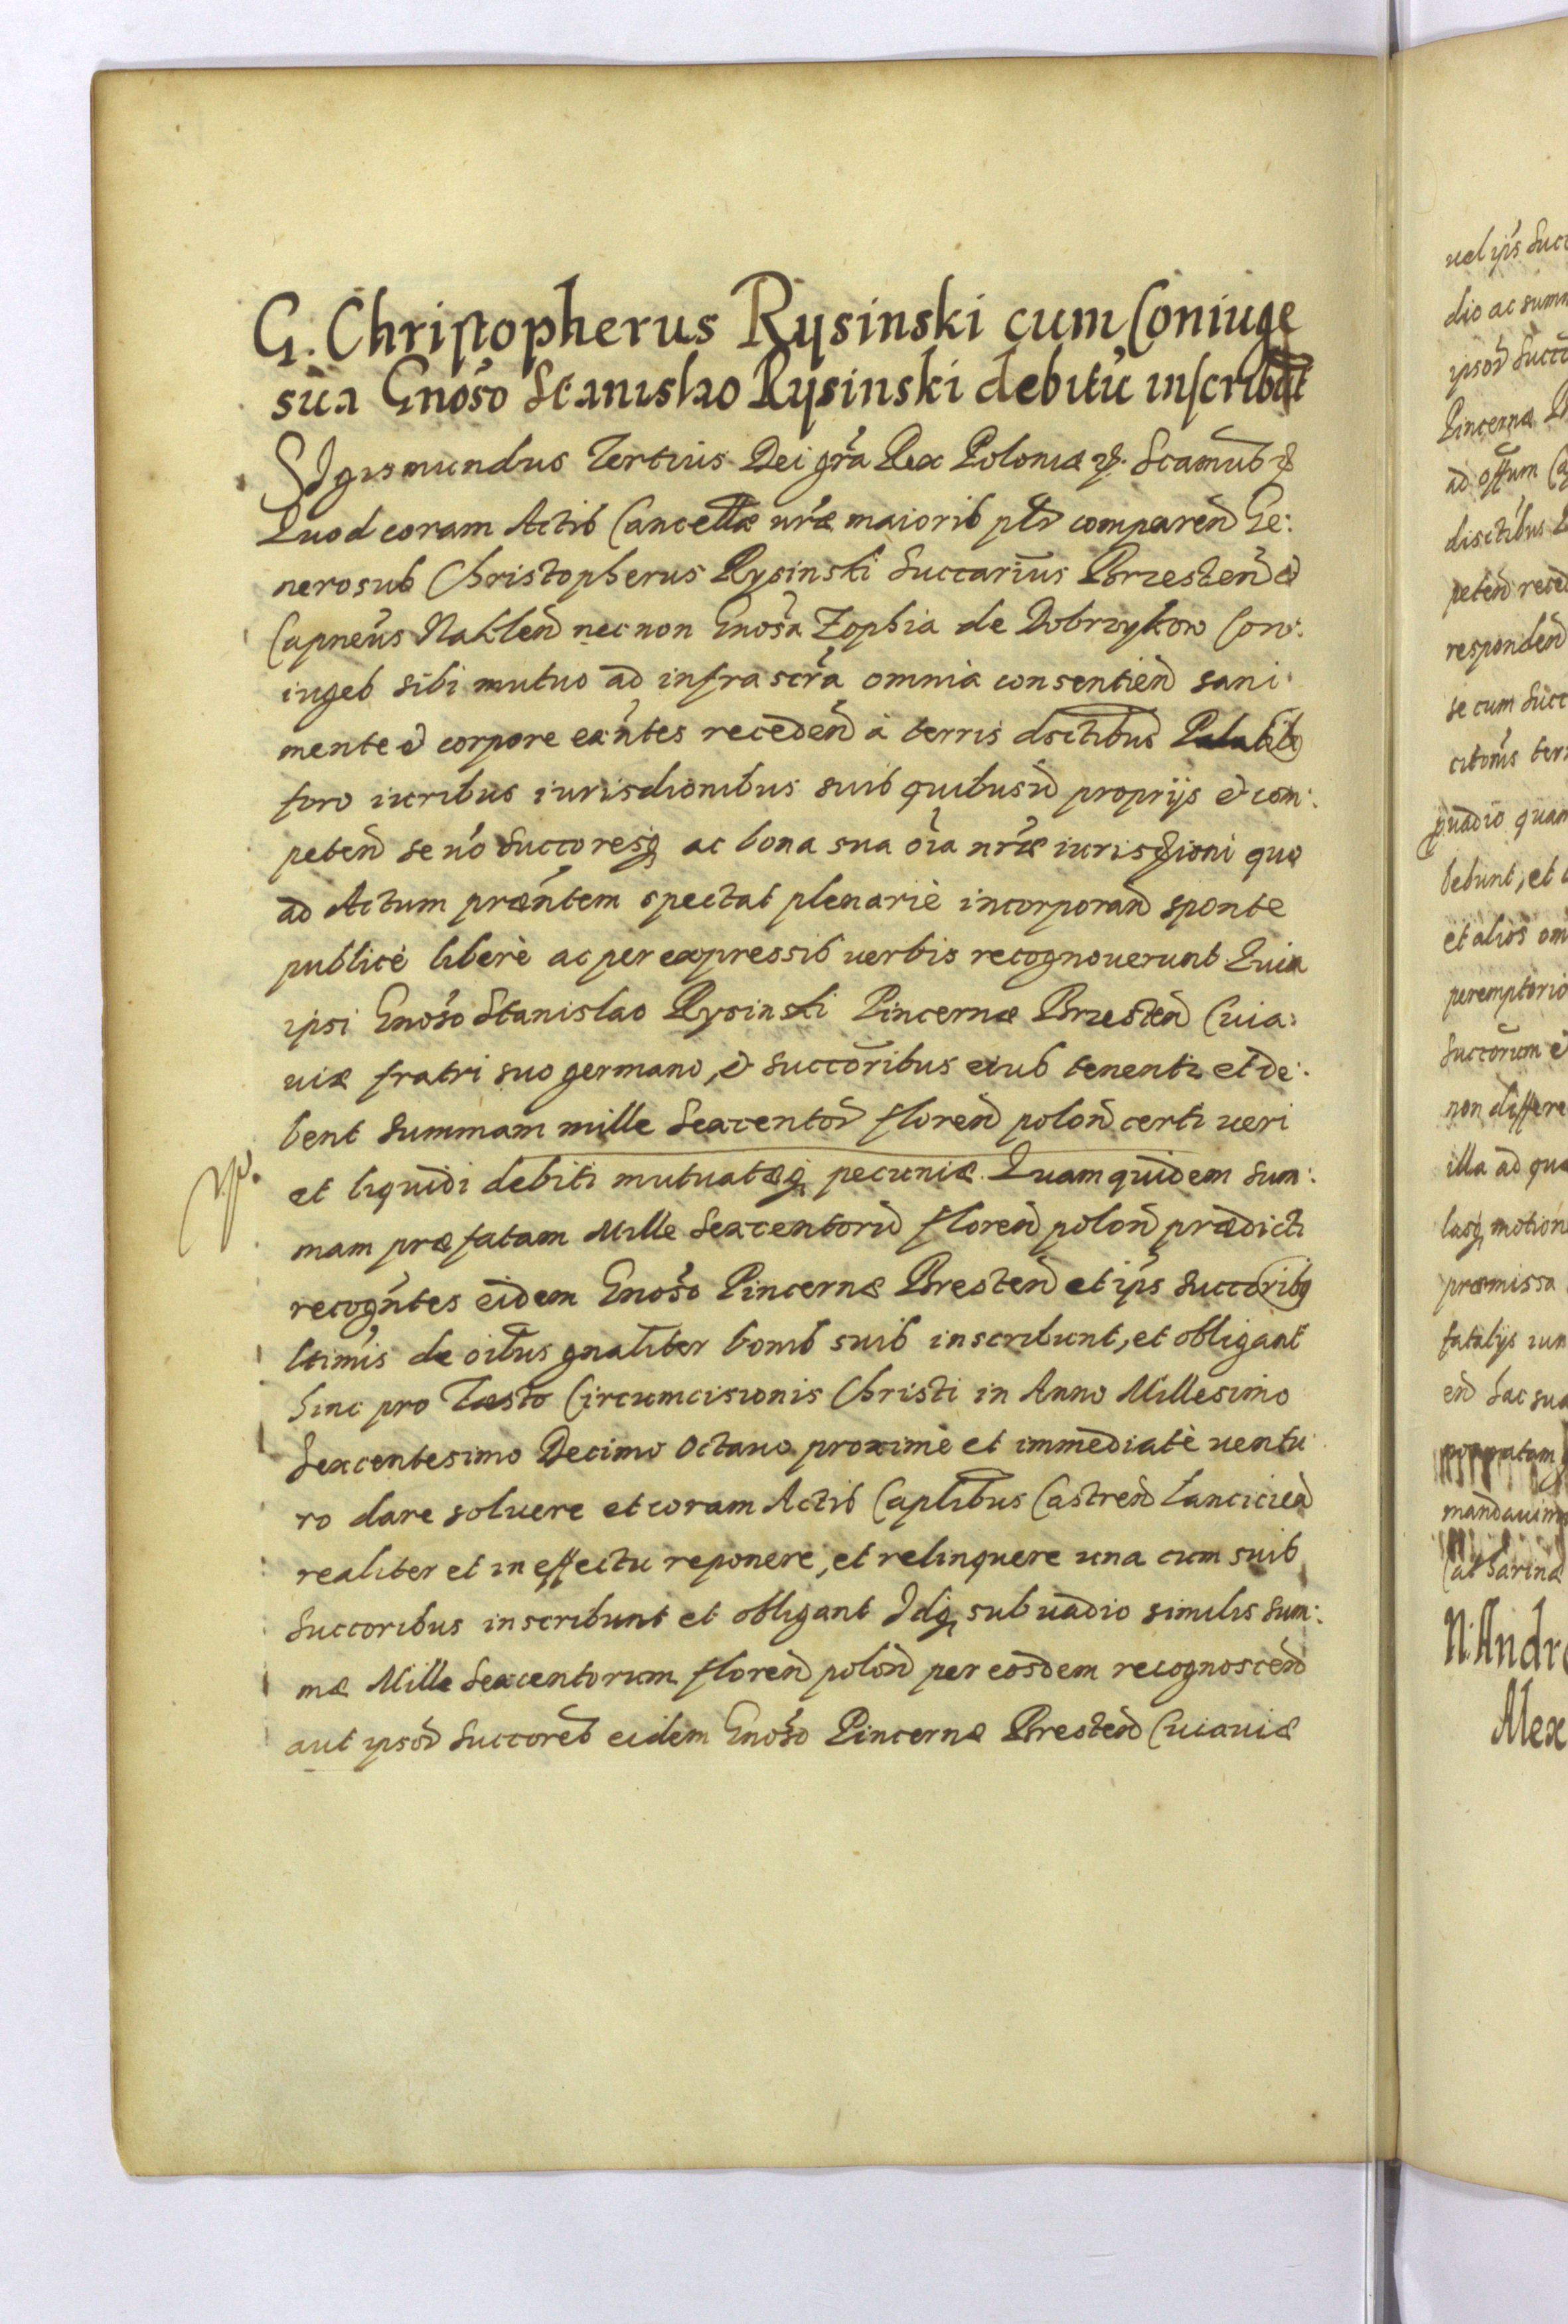 G. Christopherus Rysinski cum Coniuge
sua Gnoso Stanislao Rysinski debitū inscribūt
Sigismundus Tertius Dei gra Rex Poloniæ &. Scamus &
Quod coram Actis Cancellæ nræ maioris comparen Ge:
nerosus Christopherus Rysinski Succarius Brzesten &
Capneus Naklen nec non Gnosa Zophia de Dobrzykow Con:
iuges sibi mutuo ad infra scra omnia consentien sani
mente & corpore exntes receden à terris dsctibus
foro iuribus iurisdionibus suis quibusū proprijs & com:
peten se uo Succoresq ac bona sua oia nræ iurisdioni quo
ad Actum præntem spectat plenariè incorporan sponte
publicè liberè ac per expressis verbis recognouerunt Quia
ipsi Gnoso Stanislao Rysinski Pincernæ Brzesten Cuia:
uiæ fratri suo germano, & succoribus eius tenentr et de:
bent summam mille Sexcentor floren polon certi ueri
et liquidi debiti mutuatæq pecuniæ. Quam quidem sum:
mam præfatam Mille Sexcentorū floren polon prædicti
recogntes eidem Gnoso Pincernæ Bresten et ips succoribq
ltimis de oibus gnaliter bonis suis inscribunt, et obligant
hinc pro Festo Circumcisionis Christi in Anno Millesimo
Sexcentesimo Decimo Octauo proximè et immediatè uentu
ro dare soluere et coram Actis Caplibus Castren Lancicien
realiter et in effectu reponere, et relinquere una cum suis
Succoribus inscribunt et obligant Idq sub uadio similis sum:
mæ Mille Sexcentorum floren polon per eosdem recognoscen
aut ipsor Succores eidem Gnoso Pincernæ Bresten Cuiauiæ
uel ips Succ
dio ac summ
ipsor Succ
Pincernæ
ad offum
peten
responden
se cum Succ
uadio quam
bebunt, et
et alios om
peremptorio
Succorum &
non differe
illa ad quæ
lasq motion
præmissa
mandauim
Catharinæ
N. Andre
Alex